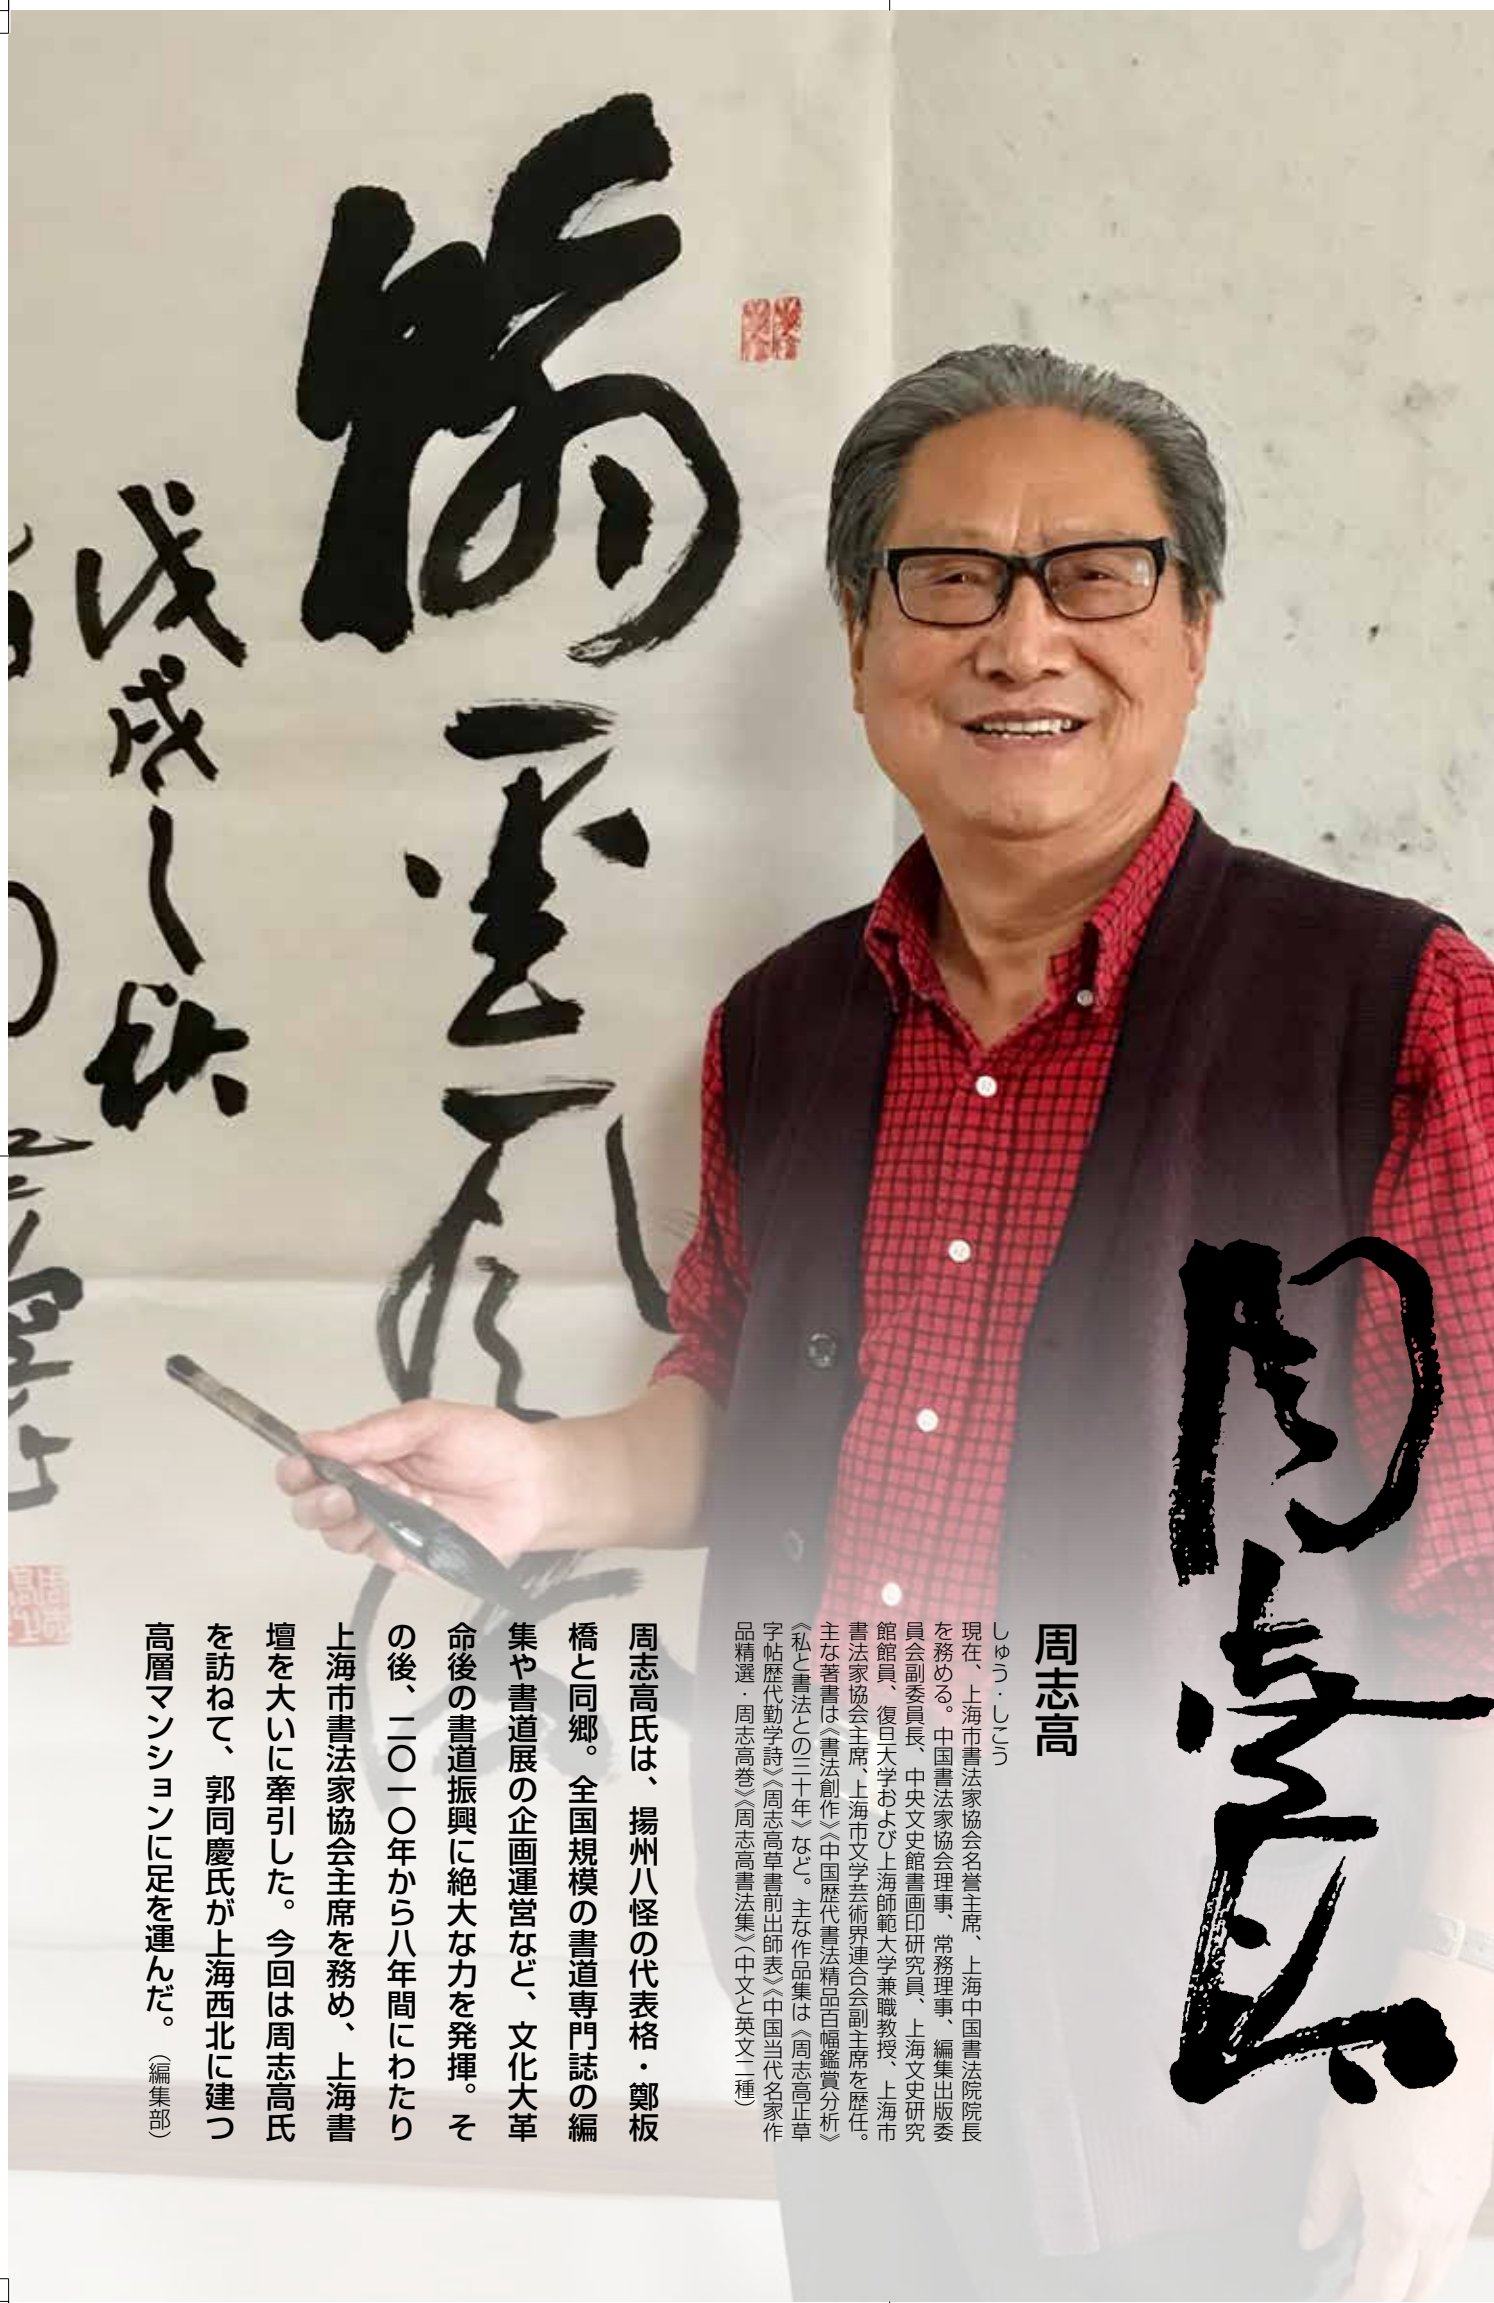 周志高
周志高
しゅう・しこう
現在、上海市書法家協会名誉主席、上海中国書法院院長
を務める。中国書法家協会理事、常務理事、編集出版委
員会副委員長、中央文史館書画印研究員、上海文史研究
館館員、復旦大学および上海師範大学兼職教授、上海市
書法家協会主席、上海市文学芸術界連合会副主席を歴任。
主な著書は《書法創作》《中国歴代書法精品百幅鑑賞分析》
《私と書法との三十年》など。主な作品集は《周志高正草
字帖歴代勤学詩》《周志高草書前出師表》《中国当代名家作
品精選・周志高巻》《周志高書法集》（中文と英文二種）
周志高氏は、揚州八怪の代表格・鄭板
橋と同郷。全国規模の書道専門誌の編
集や書道展の企画運営など、文化大革
命後の書道振興に絶大な力を発揮。そ
の後、二〇一〇年から八年間にわたり
上海市書法家協会主席を務め、上海書
壇を大いに牽引した。今回は周志高氏
を訪ねて、郭同慶氏が上海西北に建つ
高層マンションに足を運んだ。（編集部）
戊戌之秋